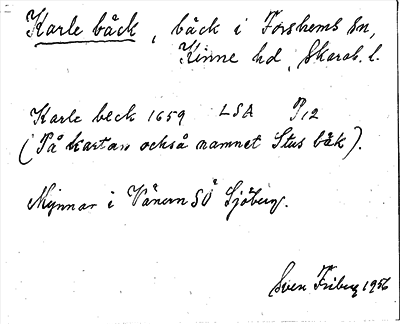 Karle bäck, bäck i Forshems sn,
Kinne hd, Skarab. l.
Karle beck 1659 LSA P12
(På kartan också namnet Stus bäk).
Mynnar i Vänern SÖ Sjöberg.
Sven Friberg 1956